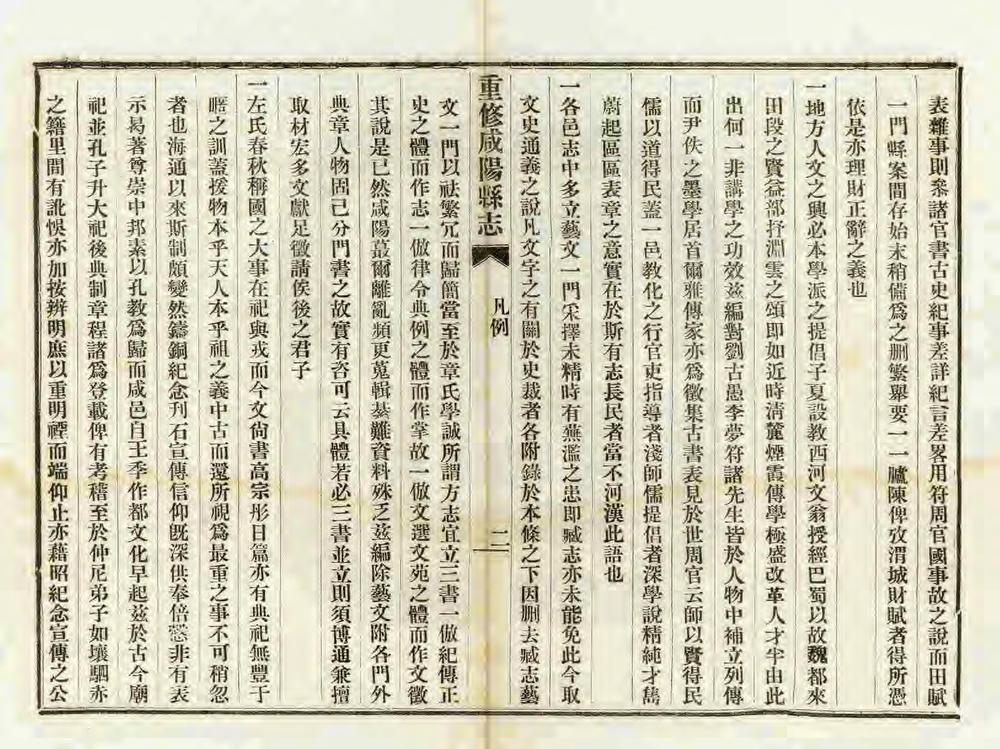 表雜事則參諸官書古史紀事差詳紀言差畧用符周官國事故之說而田賦
一門縣案間存始末稍備爲之刪繁舉要一一臚陳俾攷渭城財賦者得所憑
依是亦理財正辭之義也
一地方人文之興必本學派之提倡子夏設教西河文翁授經巴蜀以故魏都來
田段之賢益部抒淵雲之頌即如近時淸麓煙霞傳學極盛改革人才半由此
出何一非講學之功效茲編對劉古愚李夢符諸先生皆於人物中補立列傳
而尹佚之墨學居首爾雅傳家亦爲徵集古書表見於世周官云師以賢得民
儒以道得民蓋一邑教化之行官吏指導者淺師儒提倡者深學說精純才雋
蔚起區區表章之意實在於斯有志長民者當不河漢此語也
一各邑志中多立藝文一門采擇未精時有蕪濫之患即臧志亦未能免此今取
文史通義之說凡文字之有關於史裁者各附錄於本條之下因刪去臧志藝
重修咸陽縣志
凡例
二
文一門以袪繁冗而歸簡當至於章氏學誠所謂方志宜立三書一倣紀傳正
史之體而作志一倣律令典例之體而作掌故一倣文選文苑之體而作文徵
其說是已然咸陽蕞爾離亂頻更蒐輯綦難資料殊乏茲編除藝文附各門外
典章人物固已分門書之故實有咨可云具體若必三書並立則須博通兼擅
取材宏多文獻足徵請俟後之君子
一左氏春秋稱國之大事在祀與戎而今文尙書高宗肜日篇亦有典祀無豐于
暱之訓蓋援物本乎天人本乎祖之義中古而還所視爲最重之事不可稍忽
者也海通以來斯制頗變然鑄銅紀念刊石宣傳信仰旣深供奉倍慤非有表
示曷著尊崇中邦素以孔教爲歸而咸邑自王季作都文化早起茲於古今廟
祀並孔子升大祀後典制章程諸爲登載俾有考稽至於仲尼弟子如壤駟赤
之籍里間有訛悞亦加按辨明庶以重明禋而端仰止亦藉昭紀念宣傳之公